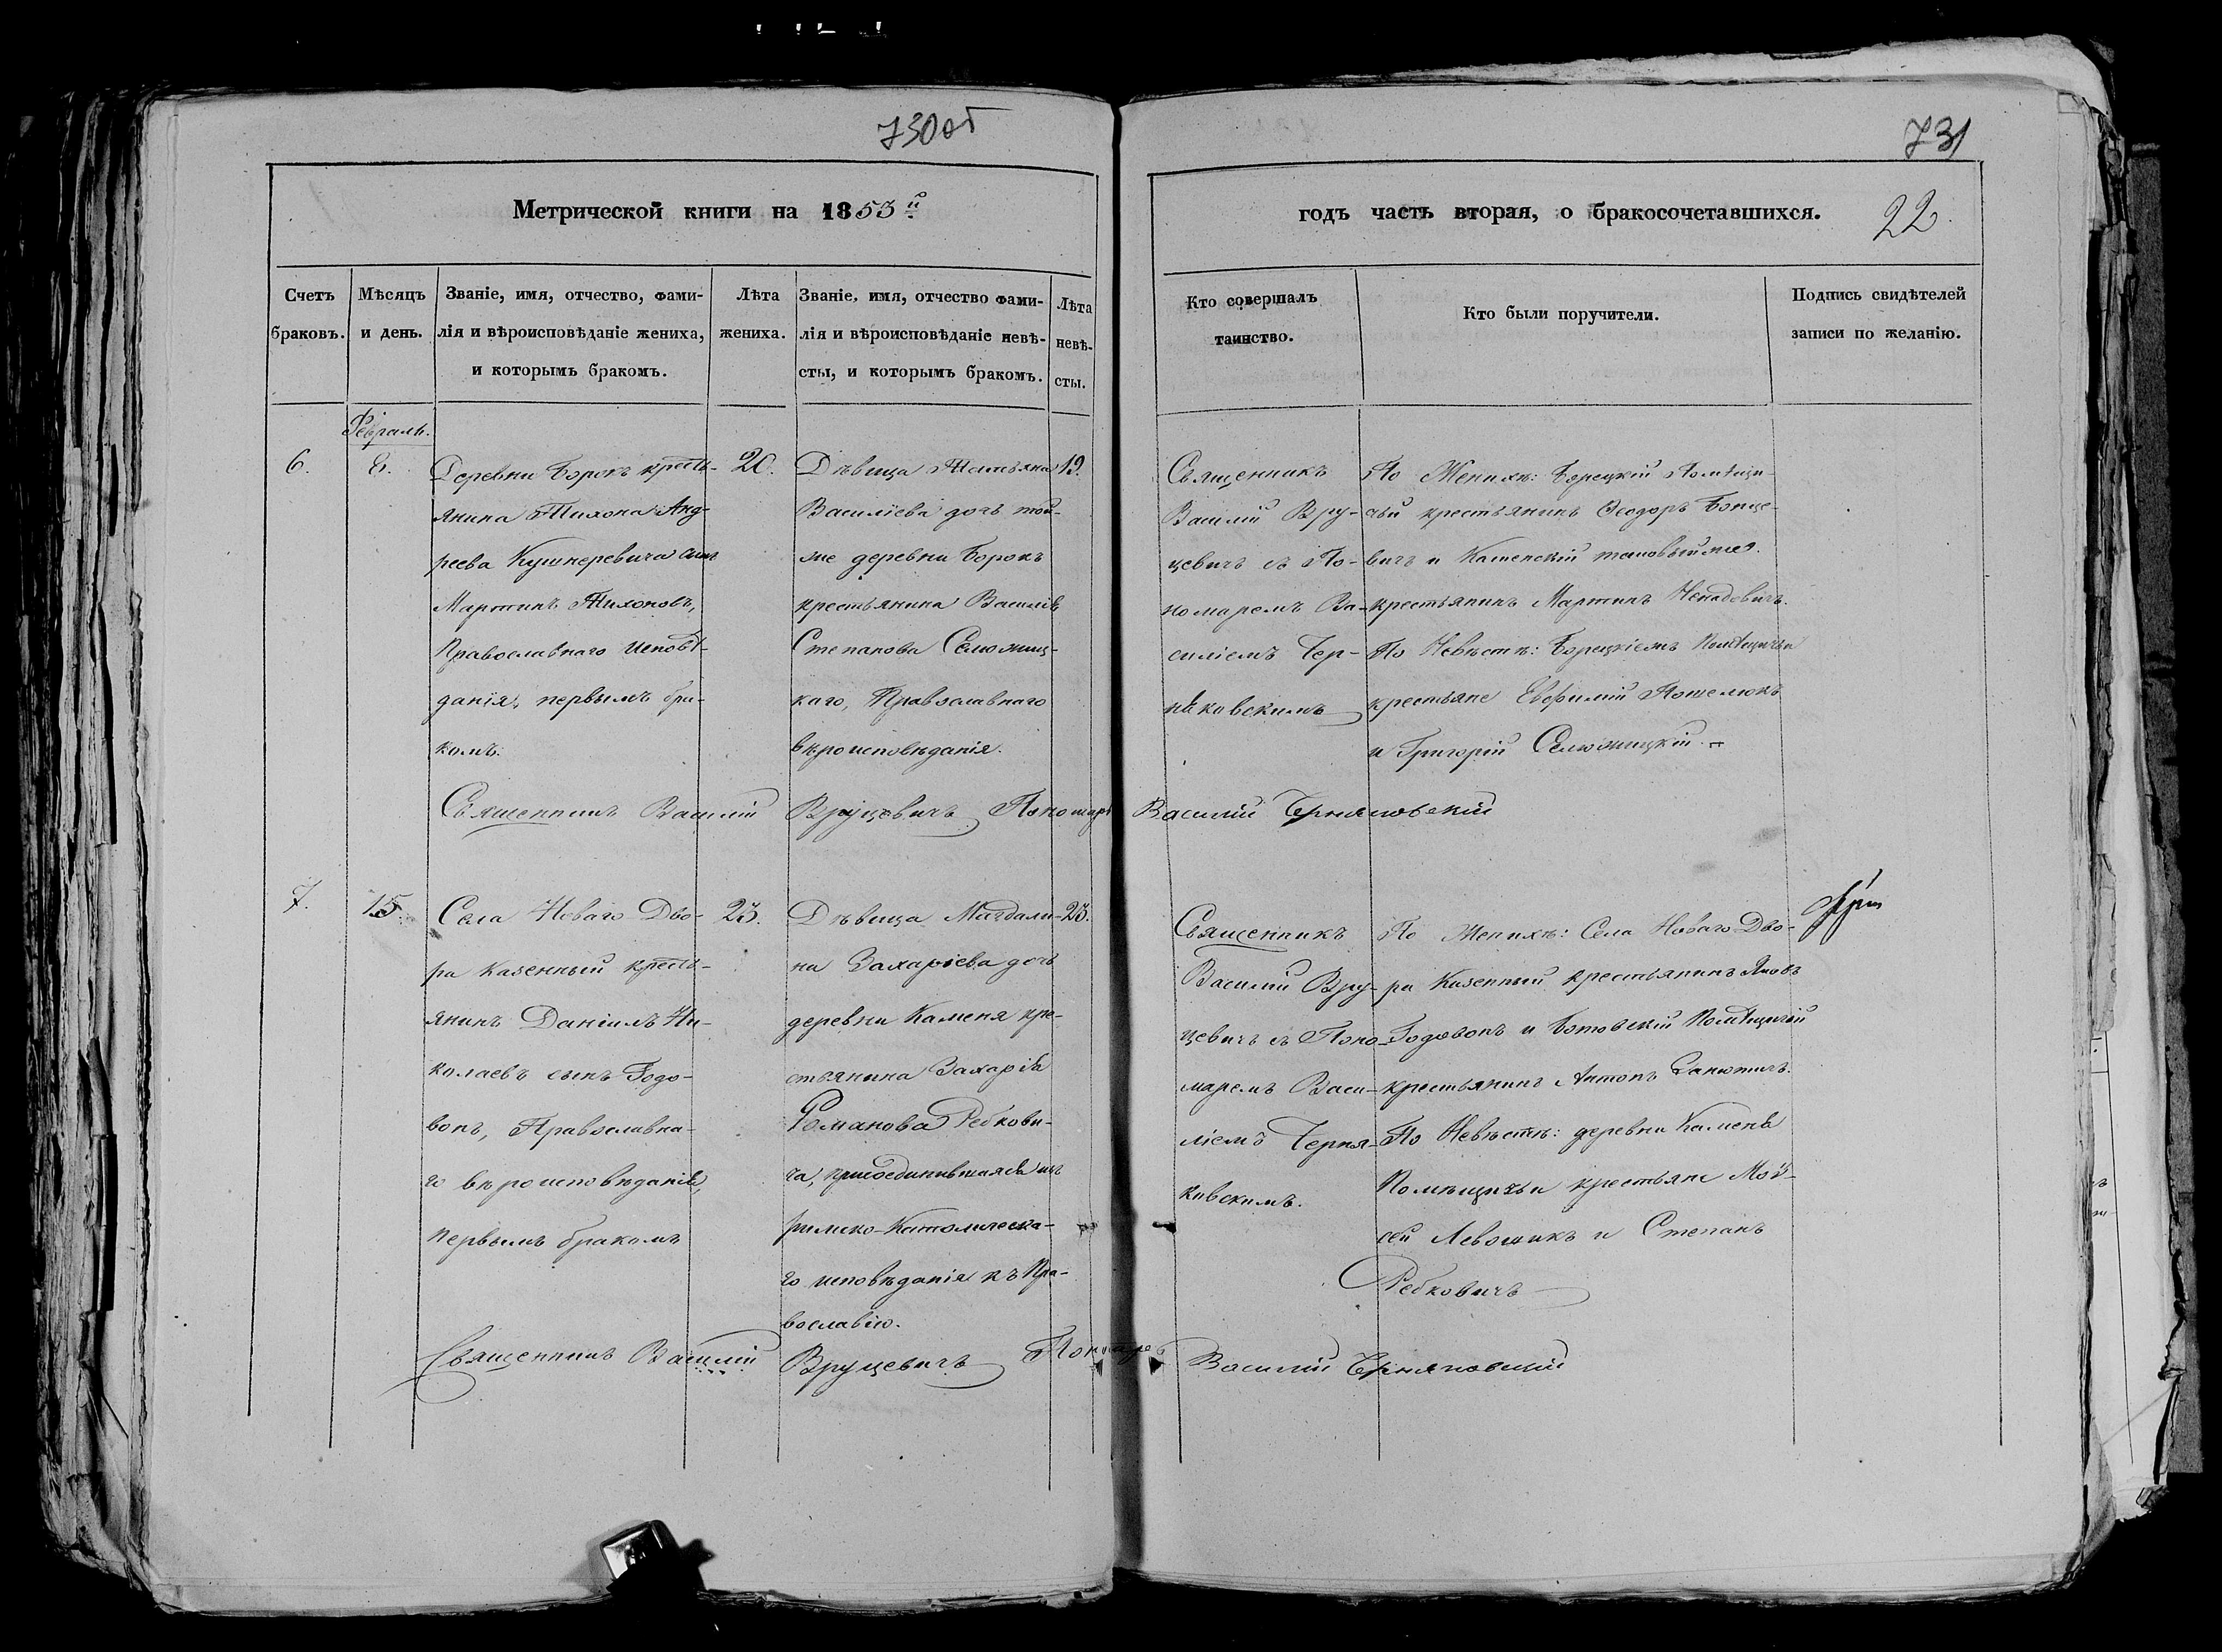 730об
731
Метрической книги на 1853й
годъ часть вторая, о бракосочетавшихся.
22.
Счетъ браковъ.
Мѣсяцъ и день.
Званіе, имя, отчество, фами-
лія и вѣроисповѣданіе жениха,
и которымъ бракомъ.
Лѣта жениха.
Званіе, имя, отчество фами-
лія и вѣроисповѣданіе невѣ-
сты, и которымъ бракомъ.
Лѣта невѣ-
сты.
Кто совершалъ
таинство.
Кто были поручители.
Подпись свидѣтелей
записи по желанію.
Февраль.
6.
8.
Деревни Борокъ кресть-
янина Тихона Анд-
реева Кушнеревича сынъ
Мартинъ Тихоновъ,
Православнаго исповѣ-
данія, первымъ бра-
комъ.
20.
Дѣвица Татьяна
Василіева дочь той-
же деревни Борокъ
крестьянина Василія
Степанова Селюжиц-
каго, Православнаго
вѣроисповѣданія.
19.
Священникъ
Василій Вру-
цевичъ съ По-
номаремъ Ва-
силіемъ Чер-
няковскимъ
По Женихѣ: Борецкій Помѣщи-
чій крестьянинъ Ѳеодоръ
вичъ и Каменскій таковыйже
крестьянинъ Мартинъ Ненадовичъ.
По Невѣстѣ: Борецкіемъ Помѣщичьи
крестьяне Евфимій Пошелюкъ
и Григорій Селюжицкій.
Священникъ Василій Вруцевичъ Пономарь Василій Черняковскій
7.
15.
Села Новаго Дво-
ра казенный кресть-
янинъ Даніилъ Ни-
колаевъ сынъ Годо-
вонъ, Православна-
го вѣроисповѣданія,
первымъ бракомъ
23.
Дѣвица Магдали-
на Захаріева дочь
деревни Каменя кре-
стьянина Захарія
Романова Ребкови-
ча, присоединившаяся изъ
римско-Католическа-
го исповѣданія къ Пра-
вославію.
23.
Священникъ
Василій Вру-
цевичъ съ Поно-
маремъ Васи-
ліемъ Черня-
ковскимъ.
По Женихѣ: Села Новаго Дво-
ра Казенный крестьянинъ Яковъ
Годовонъ и Ботовскій Помѣщичій
крестьянинъ Антонъ Занютичъ.
По Невѣстѣ: деревни Каменя
Помѣщичьи крестьяне Мои-
сей Левошикъ и Степанъ
Ребковичъ
Священникъ Василій Вруцевичъ Пономарь Василій Черняковскій